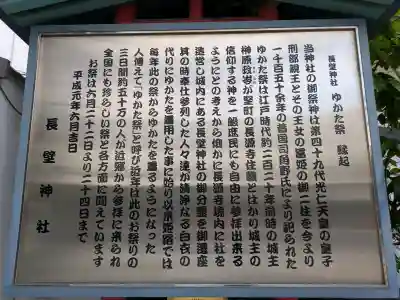 長壁神社 ゆかた祭 縁起
当神社の御祭神は第四十九代光仁天皇の皇子
刑部親王とその王女の富姫の御二柱を今より
一千百五十余年の昔国司角野氏により祀られた
ゆかた祭は江戸時代約二百二十年前時の城主
榊原政岑が竪町の長源寺住職とはかり城主の
信仰する神を一般庶民にも自由に参拝出来る
ようにとの考えから急かに長源寺境内に社を
造営し城内にある長壁神社の御分霊を御遷座
其の時奉仕参列した人々達が清浄なる白衣の
代りにゆかたを着用した事に始り以来姫路では
毎年此の祭からゆかたを着るようになった
人傳えて「ゆかた祭」と呼び近年は此のお祭りの
三日間約五十万の人が近郷から参拝に来られ
全国にも珍らしい祭と各方面に聞えています
お祭は六月二十二日より二十四日まで
平成元年六月吉日
長壁神社